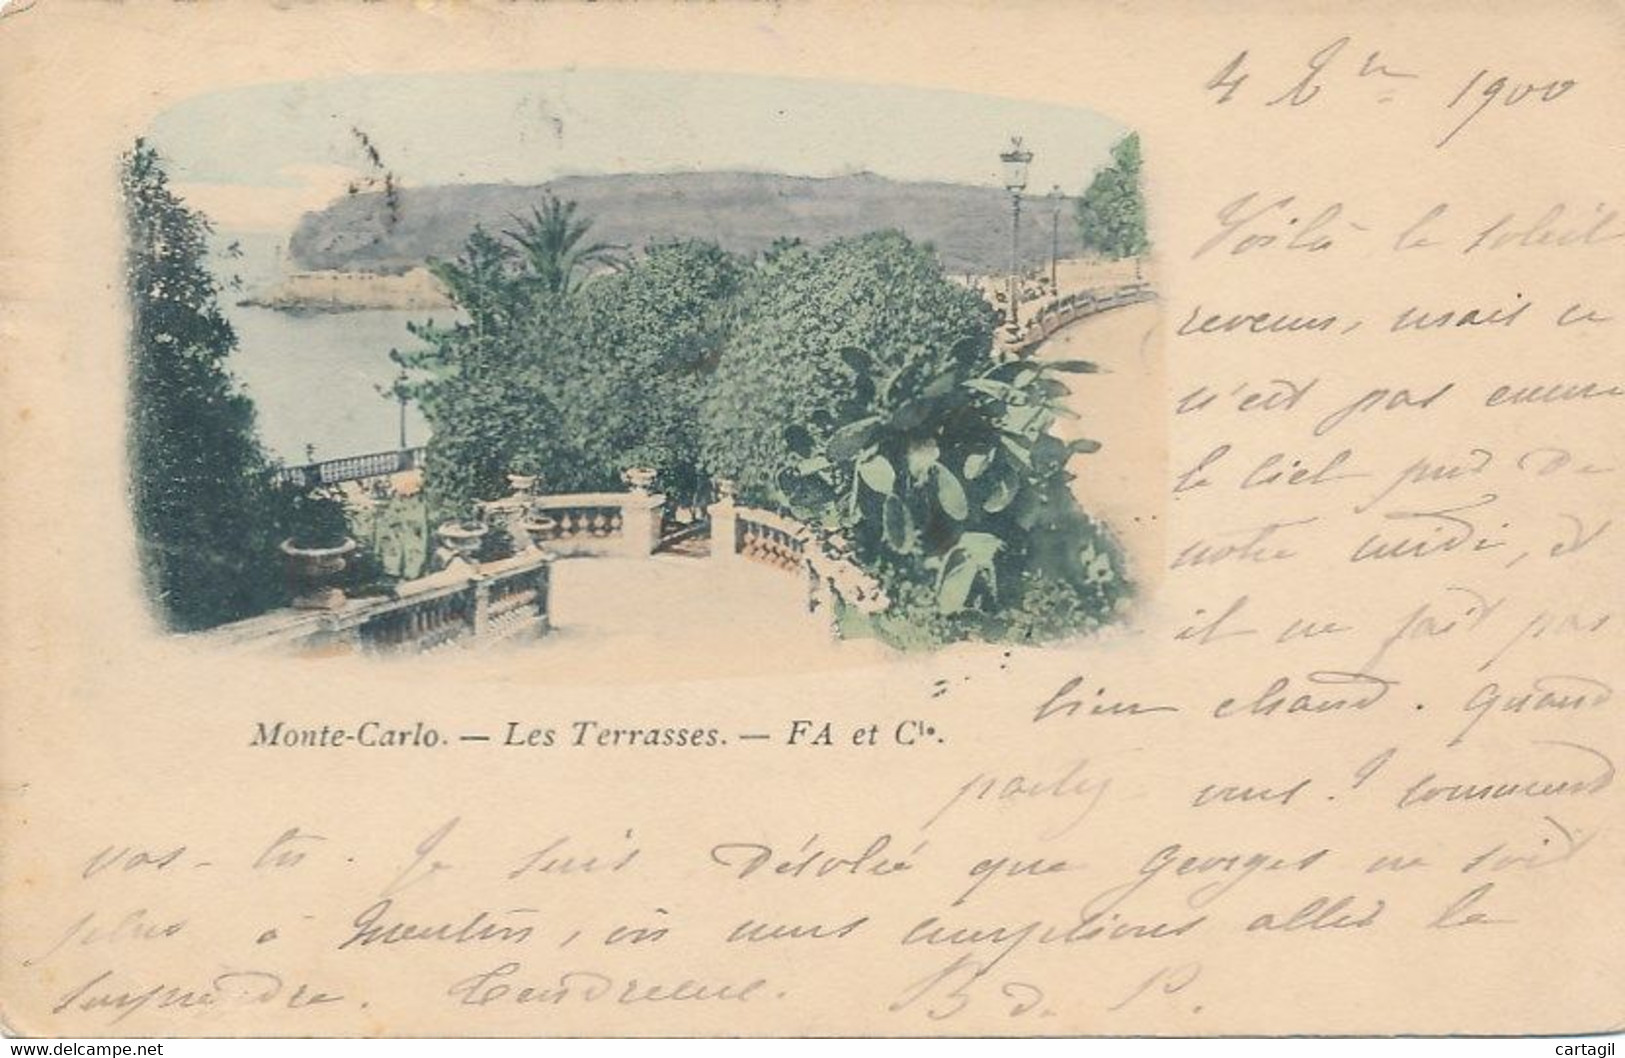 4 Xbre 1900
Voilà le soleil
revenu, mais ce
n'est pas encore
le ciel pur de
notre midi, et
il ne fait pas
bien chaud. Quand
partez-vous? Comment
vas-tu. Je suis désolée que Georges ne soit
plus à Menton, où nous comptions aller le
surprendre. Tendresse. B de P.
Monte-Carlo. — Les Terrasses. — FA et Cie.
cartagil